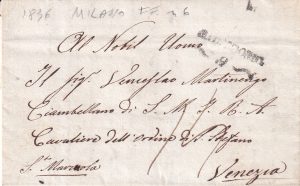 1836 MILANO
Al Nobil Uomo
Il Sig.r Venceslao Martinengo
Ciambellano di S. M. I. R. A.
Cavaliere dell'ordine di S. Stefano
S.ta Marcuola Venezia